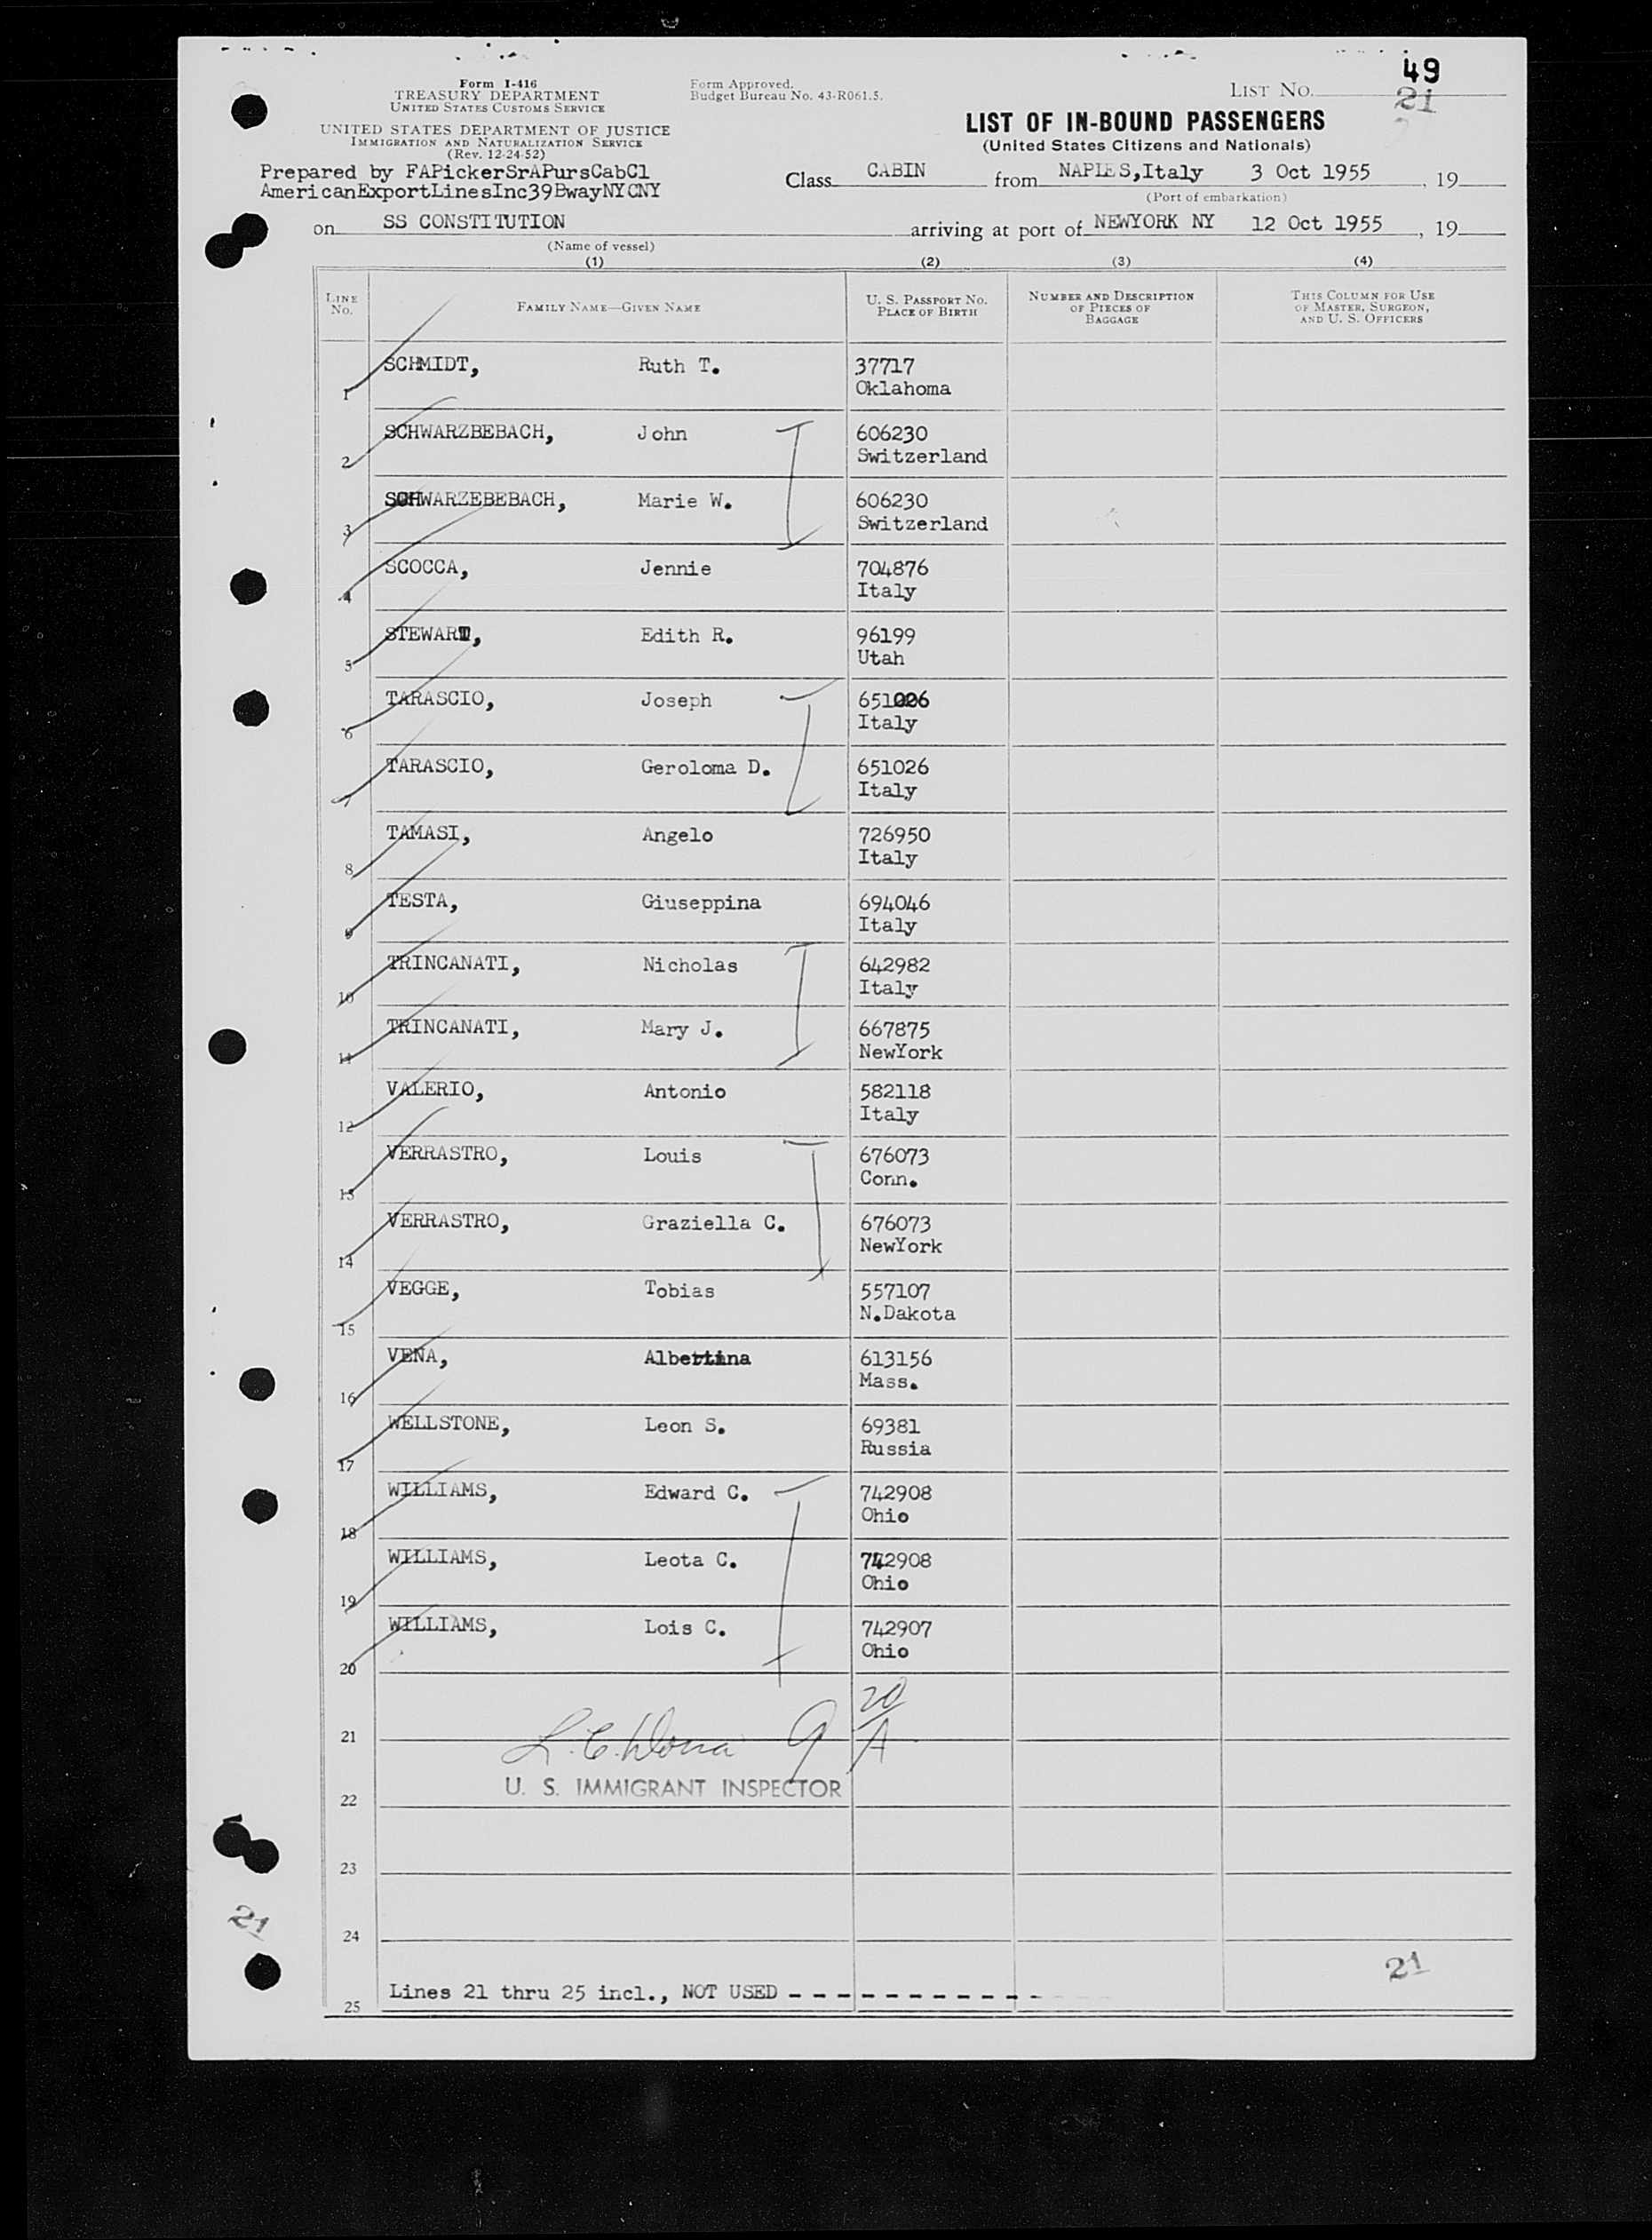 49
Form I-416
TREASURY DEPARTMENT
UNITED STATES CUSTOMS SERVICE
Form Approved.
Budget Bureau No. 43-R061.5.
LIST No.
21
UNITED STATES DEPARTMENT OF JUSTICE
IMMIGRATION AND NATURALIZATION SERVICE
(Rev. 12-24-52)
LIST OF IN-BOUND PASSENGERS
(United States Citizens and Nationals)
Prepared by FAPickerSrAPursCabCl
AmericanExportLinesInc39BwayNYCNY
Class CABIN from NAPLES,Italy 3 Oct 1955, 19
(Port of embarkation)
on SS CONSTITUTION arriving at port of NEWYORK NY 12 Oct 1955, 19
(Name of vessel)
(1) (2) (3) (4)
LINE No. FAMILY NAME—GIVEN NAME U. S. PASSPORT No. PLACE OF BIRTH NUMBER AND DESCRIPTION OF PIECES OF BAGGAGE THIS COLUMN FOR USE OF MASTER, SURGEON, AND U. S. OFFICERS
1 SCHMIDT, Ruth T. 37717
Oklahoma
2 SCHWARZBEBACH, John 606230
Switzerland
3 SCHWARZEBEBACH, Marie W. 606230
Switzerland
4 SCOCCA, Jennie 704876
Italy
5 STEWART, Edith R. 96199
Utah
6 TARASCIO, Joseph 651026
Italy
7 TARASCIO, Geroloma D. 651026
Italy
8 TAMASI, Angelo 726950
Italy
9 TESTA, Giuseppina 694046
Italy
10 TRINCANATI, Nicholas 642982
Italy
11 TRINCANATI, Mary J. 667875
NewYork
12 VALERIO, Antonio 582118
Italy
13 VERRASTRO, Louis 676073
Conn.
14 VERRASTRO, Graziella C. 676073
NewYork
15 VEGGE, Tobias 557107
N.Dakota
16 VENA, Albertina 613156
Mass.
17 WELLSTONE, Leon S. 69381
Russia
18 WILLIAMS, Edward C. 742908
Ohio
19 WILLIAMS, Leota C. 742908
Ohio
20 WILLIAMS, Lois C. 742907
Ohio
20
21 A
U. S. IMMIGRANT INSPECTOR
22
23
21
24
21
25 Lines 21 thru 25 incl., NOT USED - - - - - - - - - - -